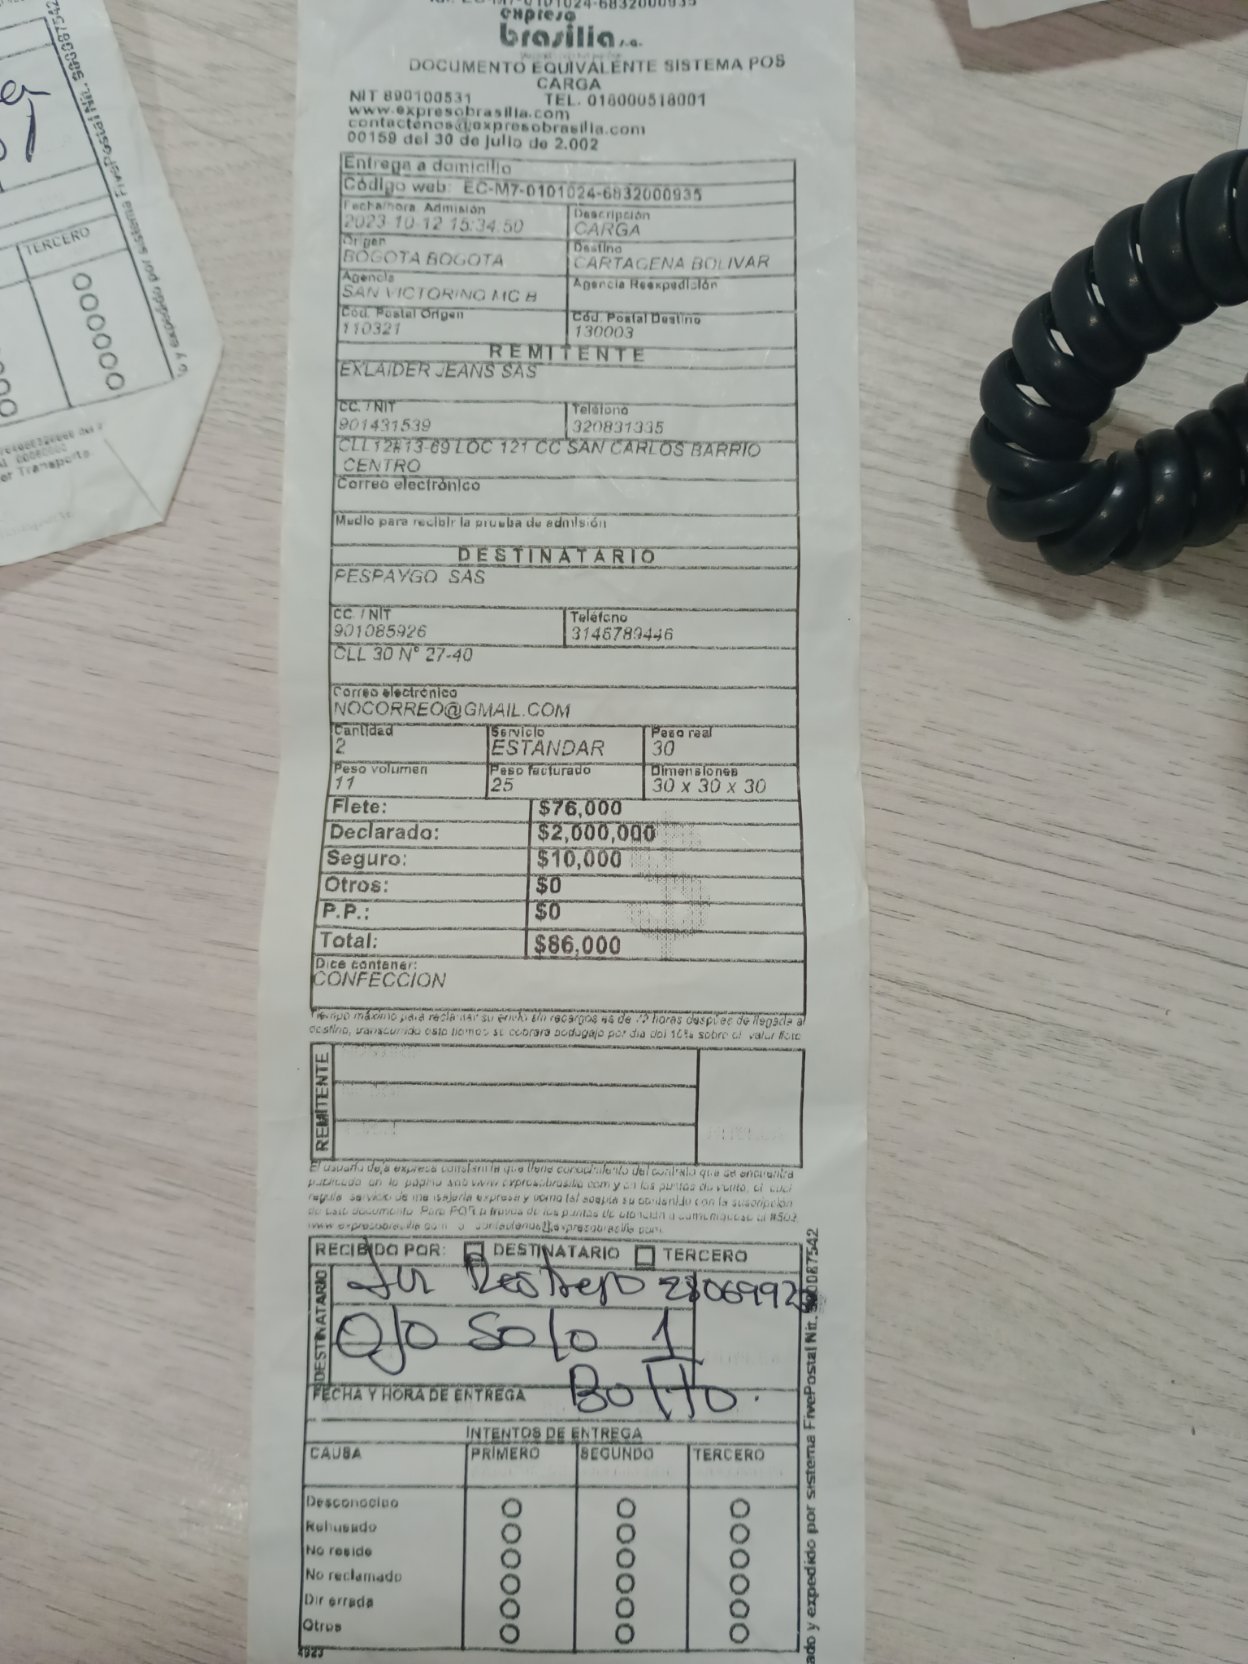 EC-M7-0101024-6832000935
expreso
brasilia s.a.
DOCUMENTO EQUIVALENTE SISTEMA POS
CARGA
NIT 890100531 TEL. 018000518001
www.expresobrasilia.com
contactenos@expresobrasilia.com
00159 del 30 de julio de 2.002
Entrega a domicilio
Código web: EC-M7-0101024-6832000935
Fecha/hora Admisión Descripción
2023-10-12 15:34:50 CARGA
Origen Destino
BOGOTA BOGOTA CARTAGENA BOLIVAR
Agencia Agencia Reexpedición
SAN VICTORINO MC B
Cód. Postal Origen Cód. Postal Destino
110321 130003
REMITENTE
EXLAIDER JEANS SAS
CC. / NIT Teléfono
901431539 320831335
CLL12#13-69 LOC 121 CC SAN CARLOS BARRIO
CENTRO
Correo electrónico
Medio para recibir la prueba de admisión
DESTINATARIO
PESPAYGO SAS
CC. / NIT Teléfono
901085926 3146789446
CLL 30 N° 27-40
Correo electrónico
NOCORREO@GMAIL.COM
Cantidad Servicio Peso real
2 ESTANDAR 30
Peso volumen Peso facturado Dimensiones
11 25 30 x 30 x 30
Flete: $76,000
Declarado: $2,000,000
Seguro: $10,000
Otros: $0
P.P.: $0
Total: $86,000
Dice contener:
CONFECCION
Tiempo máximo para reclamar su envío sin recargos es de 72 horas después de llegada a
destino, transcurrido este tiempo se cobrara bodegaje por dia del 10% sobre el valor flete
REMITENTE
El usuario deja expresa constancia que tiene conocimiento del contrato que se encuentra
publicado en la página web www.expresobrasilia.com y en los puntos de venta, el cual
regula servicio de mensajería expresa y como tal acepta su contenido con la suscripción
de este documento. Para PQR a traves de los puntos de atención o comuniquese al #502
www.expresobrasilia.com o contactenos@expresobrasilia.com
RECIBIDO POR: DESTINATARIO TERCERO
DESTINATARIO
Restrepo
Ojo solo 1
Bolto.
FECHA Y HORA DE ENTREGA
INTENTOS DE ENTREGA
CAUSA PRIMERO SEGUNDO TERCERO
Desconocido
Rehusado
No reside
No reclamado
Dir errada
Otros
4923
ado y expedido por sistema FivePostal Nit. 900087542
TERCERO
o y expedido por sistema FivePostal Nit. 900087542
er Transporte